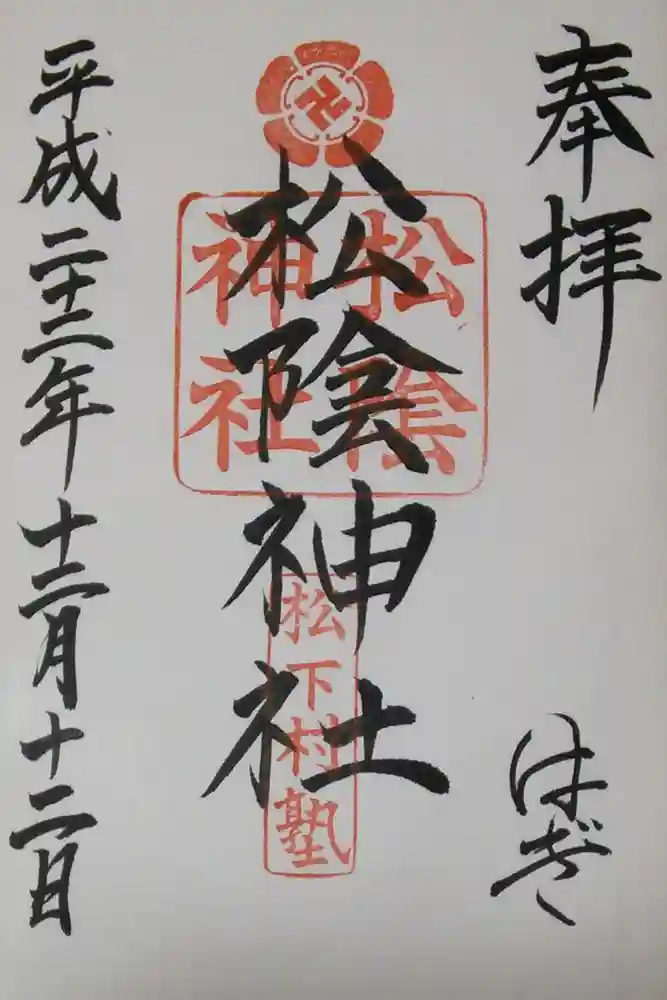 奉拝
はぎ
松陰神社
松陰
神社
松下村塾
平成二十二年十二月十二日